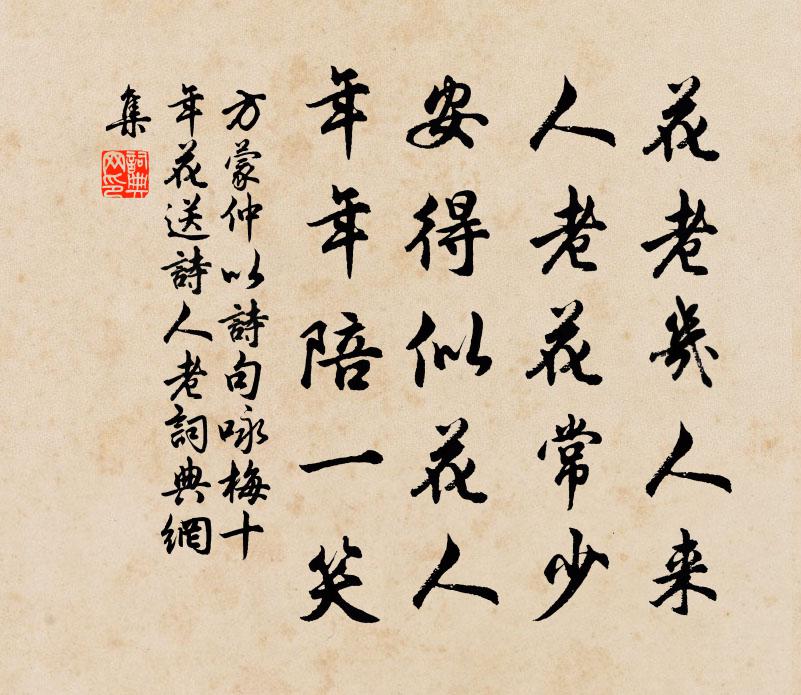 花老幾人来
人老花常少
安得似花人
年年陪一笑
方蒙仲以詩句咏梅十
年花送詩人老詞典網
集
詞典
网印